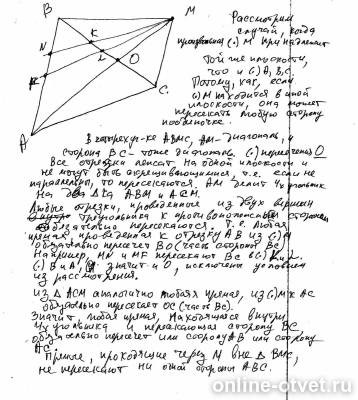 B
M
Рассмотрим
случай, когда
K
N
произвольная (.) M принадлежит
L
O
той же плоскости,
что и (.) A, B, C.
C
Потому, как, если
(.) M находится в иной
плоскости, она может
A
пересекать любую сторону
поодиночке.
В четырехуг-ке ABMC, AM - диагональ, и
сторона BC - тоже диагональ, (.) пересечен. O
Все отрезки лежат на одной плоскости и
не могут быть скрещивающимися, т.е. если не
параллельны, то пересекаются. AM делит
На два Δ-ка ABM и ACM.
Любые отрезки, проведенные из двух вершин
треугольника к противоположным сторонам
обязательно пересекаются. Т.е. любая
прямая, проведенная к отрезку AB из (.) M
обязательно пересечет BO (часть стороны BC)
Например, MN и MF пересекают BC в (.) K и L.
(.) B и A, значит и O, исключены условием
из рассмотрения.
из Δ ACM аналогично любая прямая, из (.) M к AC
обязательно пересекает OC (часть BC).
Значит, любая прямая, находящаяся внутри
и пересекающая сторону BC
обязательно пересечет или сторону AB или сторону
AC.
Прямые, проходящие через M вне Δ BMC,
не пересекают ни одной стороны ABC.
online-otvet.ru